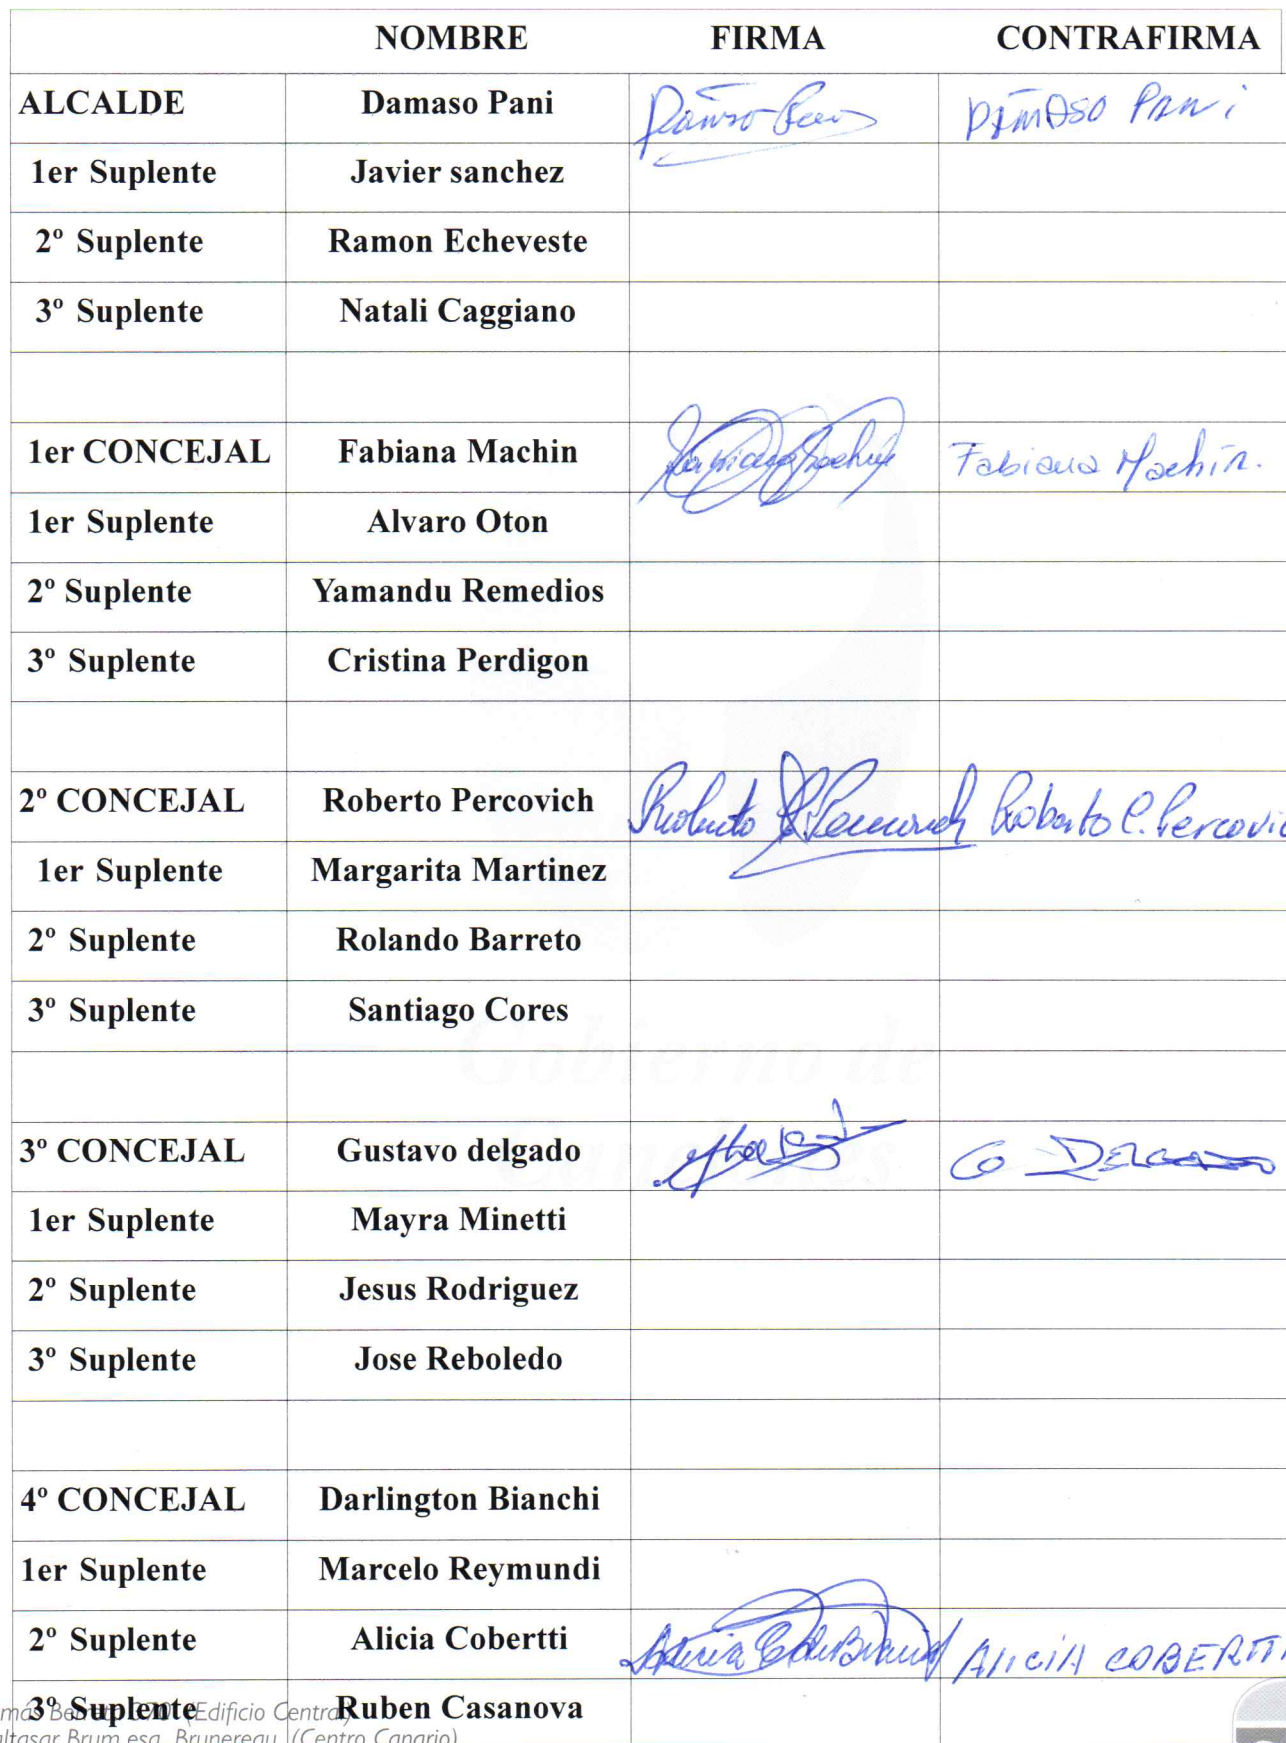 NOMBRE FIRMA CONTRAFIRMA
ALCALDE Damaso Pani DAMASO PANi
1er Suplente Javier sanchez
2º Suplente Ramon Echeveste
3º Suplente Natali Caggiano
1er CONCEJAL Fabiana Machin Fabiana Machin.
1er Suplente Alvaro Oton
2º Suplente Yamandu Remedios
3º Suplente Cristina Perdigon
2º CONCEJAL Roberto Percovich Roberto Roberto C. Percovic
1er Suplente Margarita Martinez
2º Suplente Rolando Barreto
3º Suplente Santiago Cores
Gobierno de
3º CONCEJAL Gustavo delgado G DELGADO
1er Suplente Mayra Minetti
2º Suplente Jesus Rodriguez
3º Suplente Jose Reboledo
4º CONCEJAL Darlington Bianchi
1er Suplente Marcelo Reymundi
2º Suplente Alicia Cobertti Alicia ALICIA COBERTTI
3º Suplente Ruben Casanova
370 (Edificio Central)
Brum esq. Brunereau (Centro Canario)